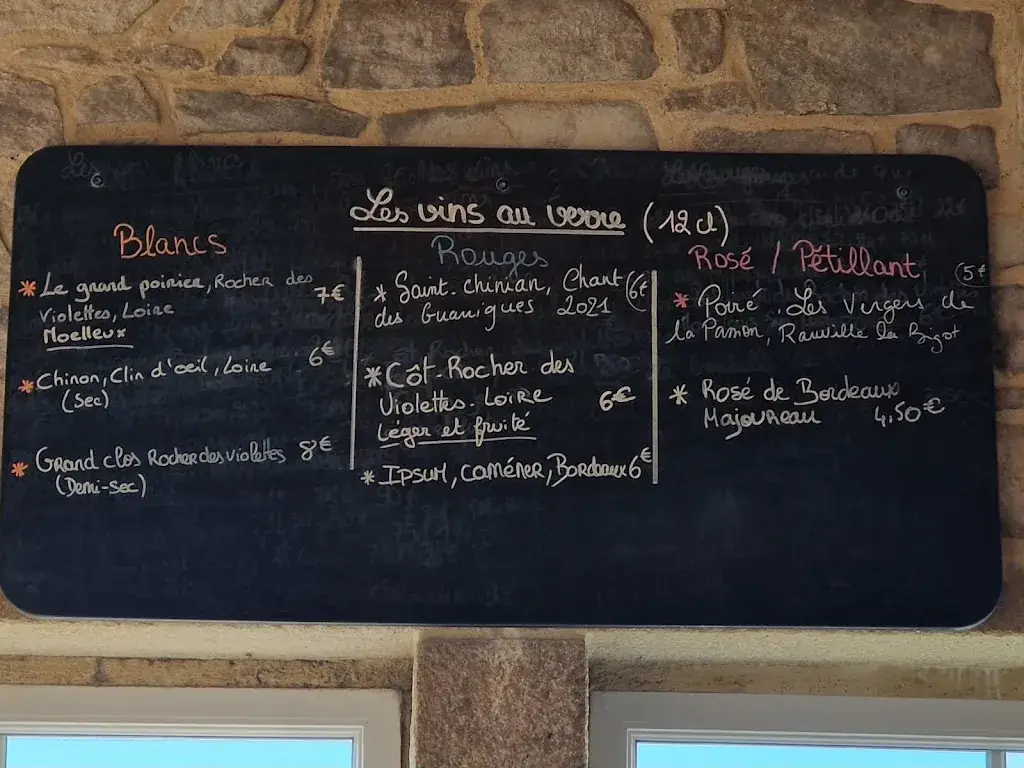 Les vins au verre (12 cl)
Blancs
* Le grand poirier, Rocher des
Violettes, Loire 7€
Moelleux
* Chinon, Clin d'oeil, Loire 6€
(Sec)
* Grand clos Rocher des violettes 8€
(Demi-sec)
Rouges
* Saint-chinian, Chant 6€
des Guarrigues 2021
* Côt-Rocher des
Violettes-Loire 6€
Léger et fruité
* IPSUM, caméner, Bordeaux 6€
Rosé / Pétillant
5€
* Poiré. Les Vergers de
la Passion, Rauville la Bigot
* Rosé de Bordeaux
Majoureau 4,50€